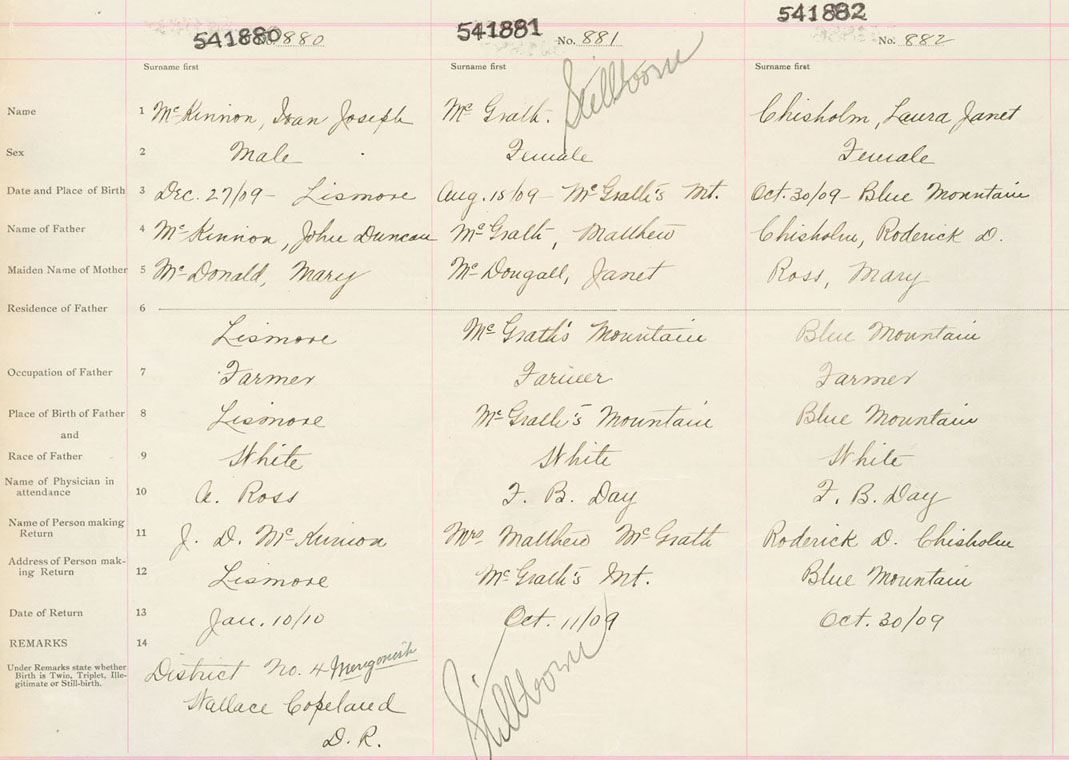 541880 No. 880 541881 No. 881 541882 No. 882
Surname first Surname first Stillborn Surname first
Name 1 McKinnon, Ivan Joseph McGrath. Chisholm, Laura Janet
Sex 2 Male Female Female
Date and Place of Birth 3 Dec. 27/09 - Lismore Aug. 15/09 - McGrath's Mt. Oct. 30/09 - Blue Mountain
Name of Father 4 McKinnon, John Duncan McGrath, Matthew Chisholm, Roderick D.
Maiden Name of Mother 5 McDonald, Mary McDougall, Janet Ross, Mary
Residence of Father 6
Lismore McGrath's Mountain Blue Mountain
Occupation of Father 7 Farmer Farmer Farmer
Place of Birth of Father 8 Lismore McGrath's Mountain Blue Mountain
and
Race of Father 9 White White White
Name of Physician in
attendance 10 A. Ross F. B. Day F. B. Day
Name of Person making
Return 11 J. D. McKinnon Mrs Matthew McGrath Roderick D. Chisholm
Address of Person mak-
ing Return 12 Lismore McGrath's Mt. Blue Mountain
Date of Return 13 Jan. 10/10 Oct. 11/09 Oct. 30/09
REMARKS 14
Under Remarks state whether
Birth is Twin, Triplet, Ille-
gitimate or Still-birth.
District No. 4 Merigomish
Wallace Copeland
D. R.
Stillborn